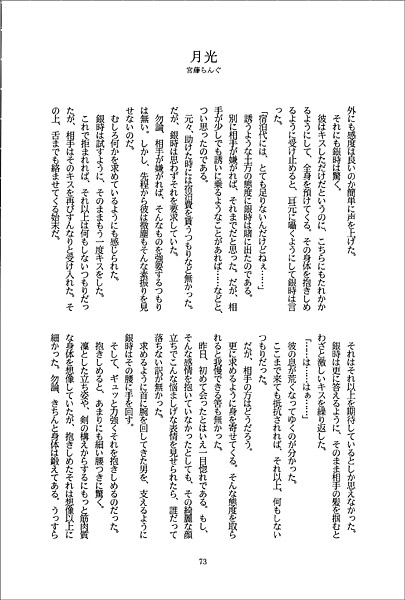 月光
宮藤もんぐ
外にも感度は良いのか簡単に声を上げた。
それにも銀時は驚く。
彼はキスしただけだというのに、こちらにもたれかか
るようにして、全身を預けてくる。その身体を抱きしめ
るように受け止めると、耳元に囁くようにして銀時は言
った。
「宿泊代には、とても足りないんだけどねぇ……」
誘うような土方の態度に銀時は賭に出たのである。
別に相手が嫌がれば、それまでだと思った。だが、相
手が少しでも誘いに乗るようなことがあれば……などと、
つい思ったのである。
元々、助けた時には宿泊費を貰うつもりなど無かった。
だが、銀時は思わずそれを要求していた。
勿論、相手が嫌がれば、そんなものを強要するつもり
は無い。しかし、先程から彼は微塵もそんな素振りを見
せないのだ。
むしろ何かを求めているようにも感じられた。
銀時は試すように、そのままもう一度キスをした。
これで拒まれれば、それ以上は何もしないつもりだっ
たが、相手はそのキスを再びすんなりと受け入れた。そ
の上、舌までも絡ませてくる始末だ。
それはそれ以上を期待しているとしか思えなかった。
銀時は更に答えるように、そのまま相手の髪を掴むと
わざと厳しいキスを繰り返した。
「……は……はぁ…」
彼の息が荒くなってゆくのが分かった。
ここまで来ても抵抗されれば、それ以上、何もしない
つもりだった。
だが、相手の方はどうだろう。
更に求めるように身を寄せてくる。そんな態度を取ら
れると我慢できる筈も無かった。
昨日、初めて会ったとはいえ一目惚れである。もし、
そんな感情を抱いていなかったとしても、その綺麗な顔
立ちでこんな悩ましげな表情を見せられたら、誰だって
落ちない訳が無かった。
求めるように首に腕を回してきた男を、支えるように
銀時はその腰に手を回す。
そして、ギュッと力強くそれを抱きしめるのだった。
抱きしめると、あまりにも細い腰つきに驚く。
凜とした立ち姿や、剣の構えからするにもっと筋肉質
な身体を想像していたが、抱きしめたそれは想像以上に
細かった。勿論、きちんと身体は鍛えてある。うっすら
73